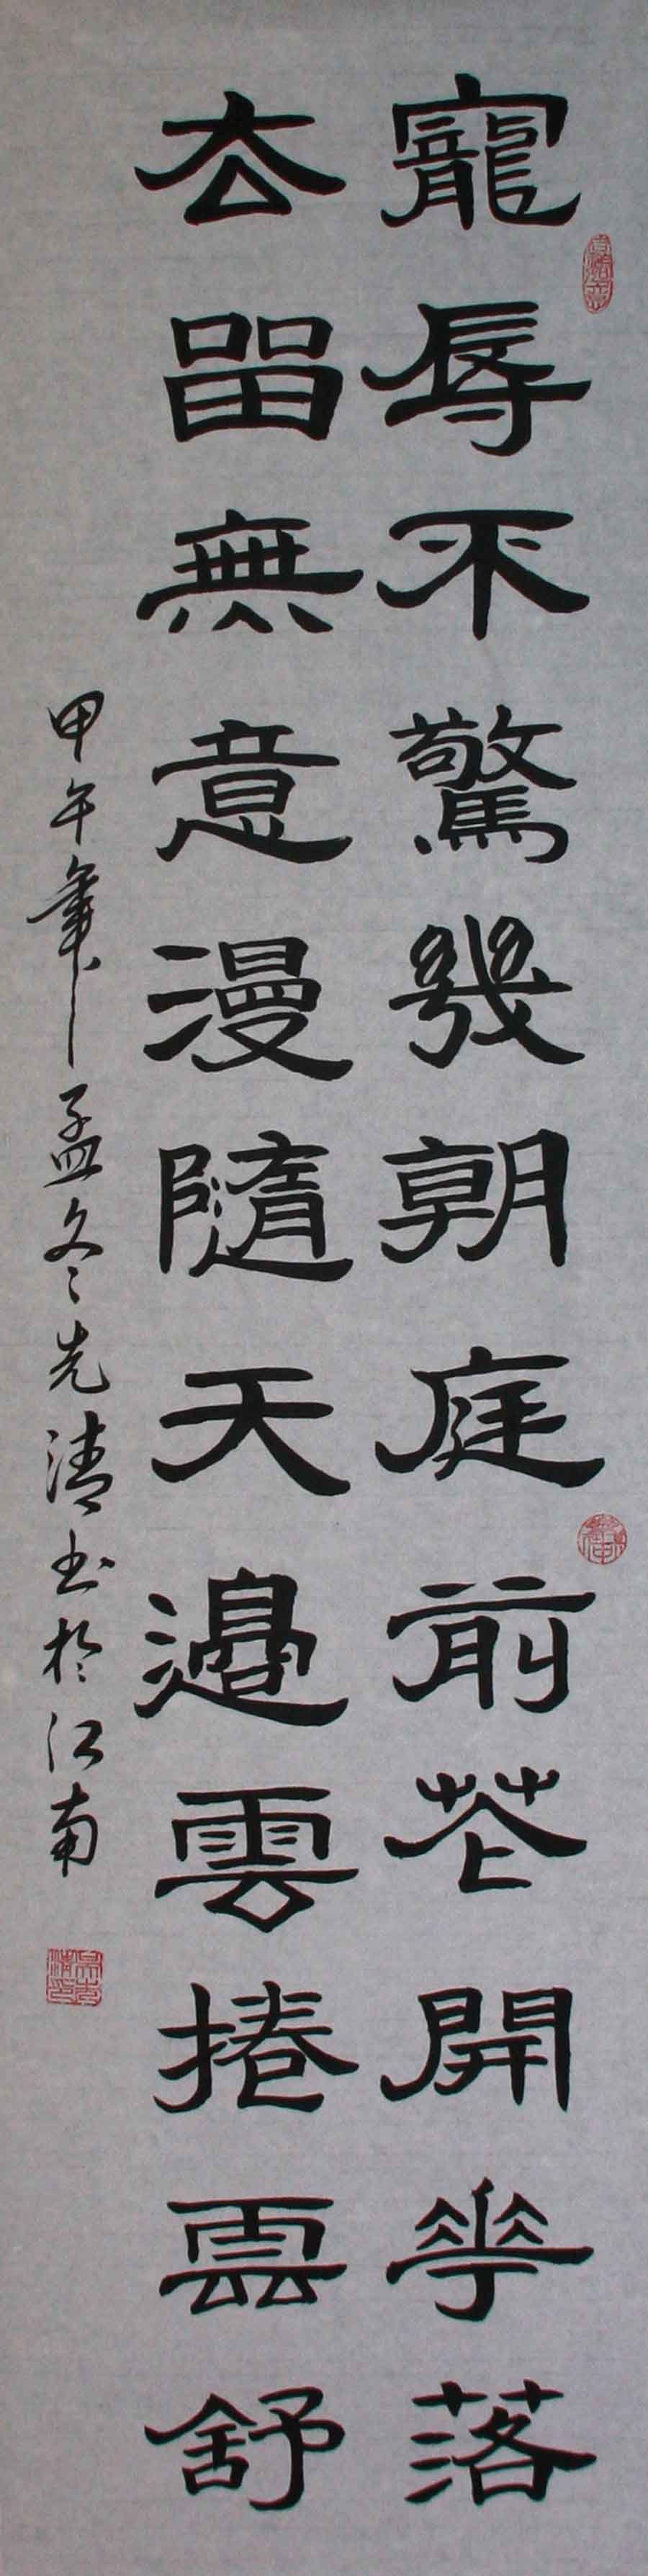 寵辱不驚幾朝庭前花開花落
去留無意漫隨天邊雲捲雲舒
甲午年孟冬先清书於江南